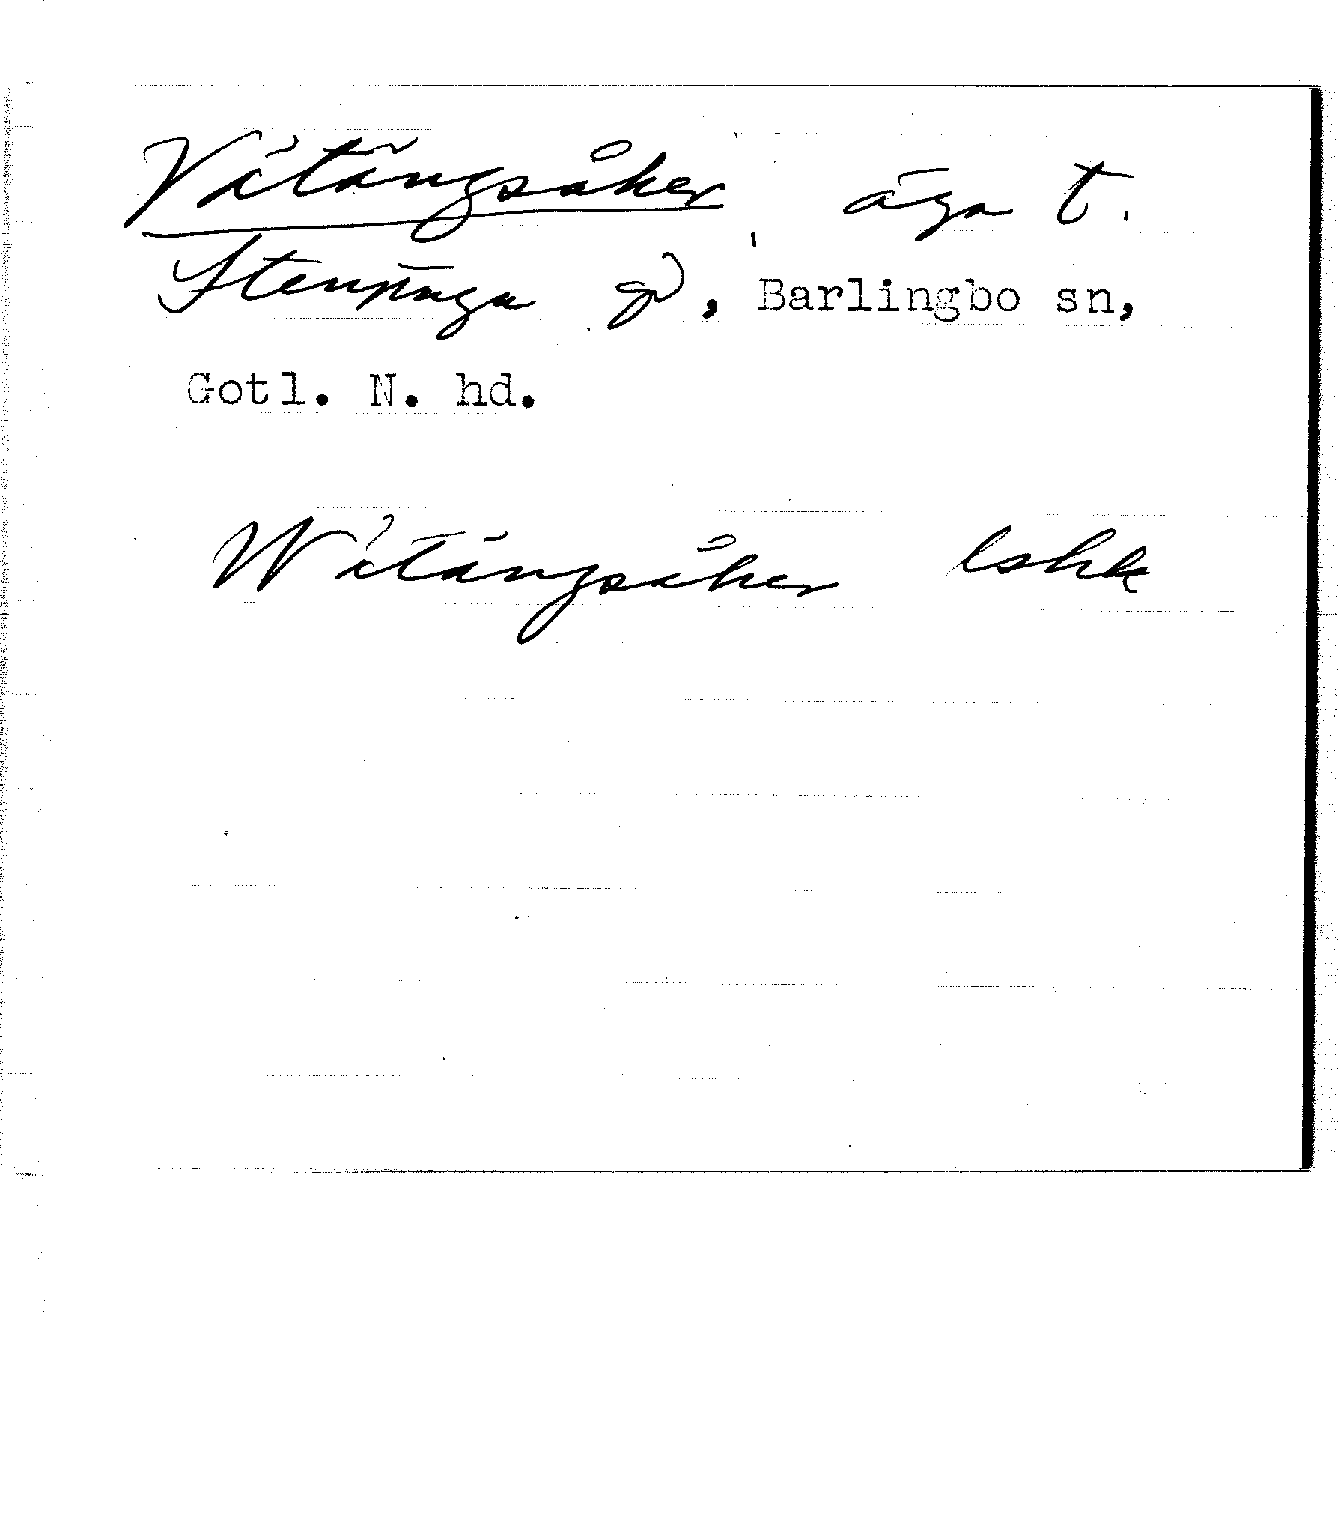 Vätängsåker, äga t.
Stenstuga gd, Barlingbo sn,
Gotl. N. hd.
Wätängsåker lshk